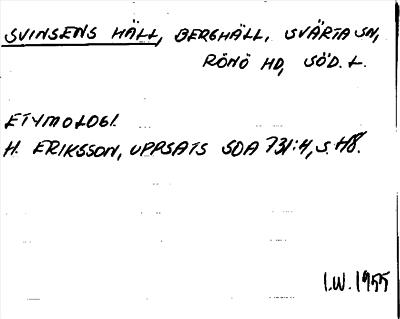 SVINSENS HÄLL, BERGHÄLL, SVÄRTA SN,
RÖNÖ HD, SÖD. L.
ETYMOLOGI.
H. ERIKSSON, UPPSATS SOA 731:4, S.
I.W. 1955